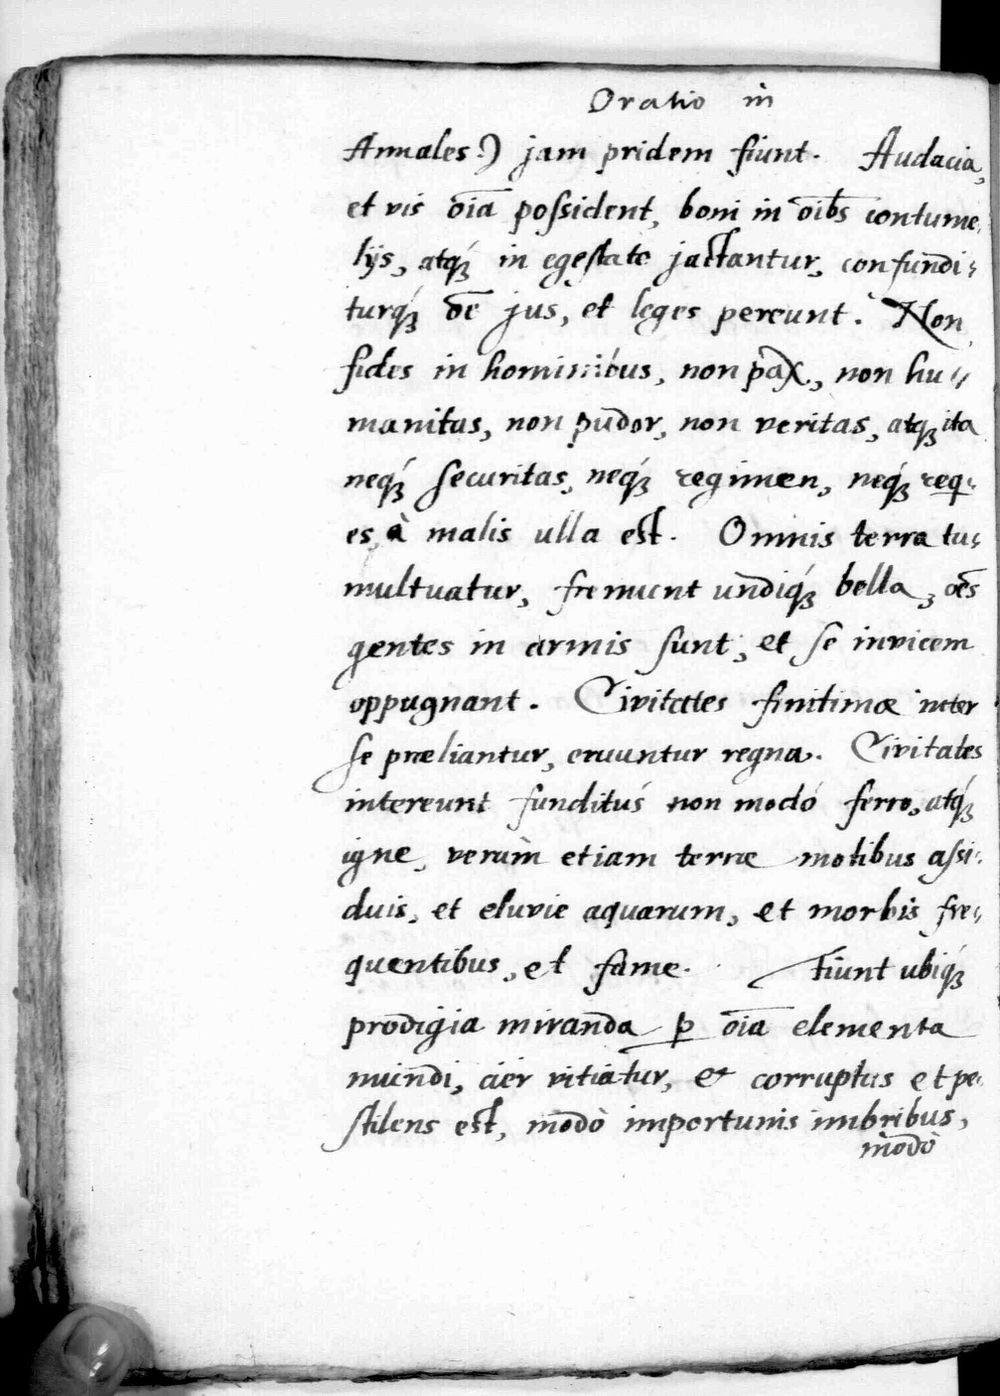 Oratio in
Annales:) jam pridem fiunt. Audacia,
et vis oīa poſsident, boni in oībs contume
lijs, atq́ꝫ in egeſtate jactantur, confundi-
turq́ꝫ oē jus, et leges pereunt. Non
fides in hominibus, non pax, non hu-
manitas, non pudor, non veritas, atqꝫ ita
neq́ꝫ ſecuritas, neq́ꝫ regimen, neq́ꝫ requi-
es, à malis ulla est. Omnis terra tu-
multuatur, fremunt undiq́ꝫ bella, oēs
gentes in armis ſunt, et ſe invicem
oppugnant. Civitates finitimæ inter
ſe præliantur, eruuntur regna. Civitates
intereunt funditus non modó ferro, atq́ꝫ
igne, verùm etiam terræ motibus aſsi-
duis, et eluvie aquarum, et morbis fre-
quentibus, et fame. Fiunt ubiq́ꝫ
prodigia miranda ꝑ oīa elementa
mundi, aër vitiatur, et corruptus et pe-
ſtilens est, modò importunis imbribus,
modò